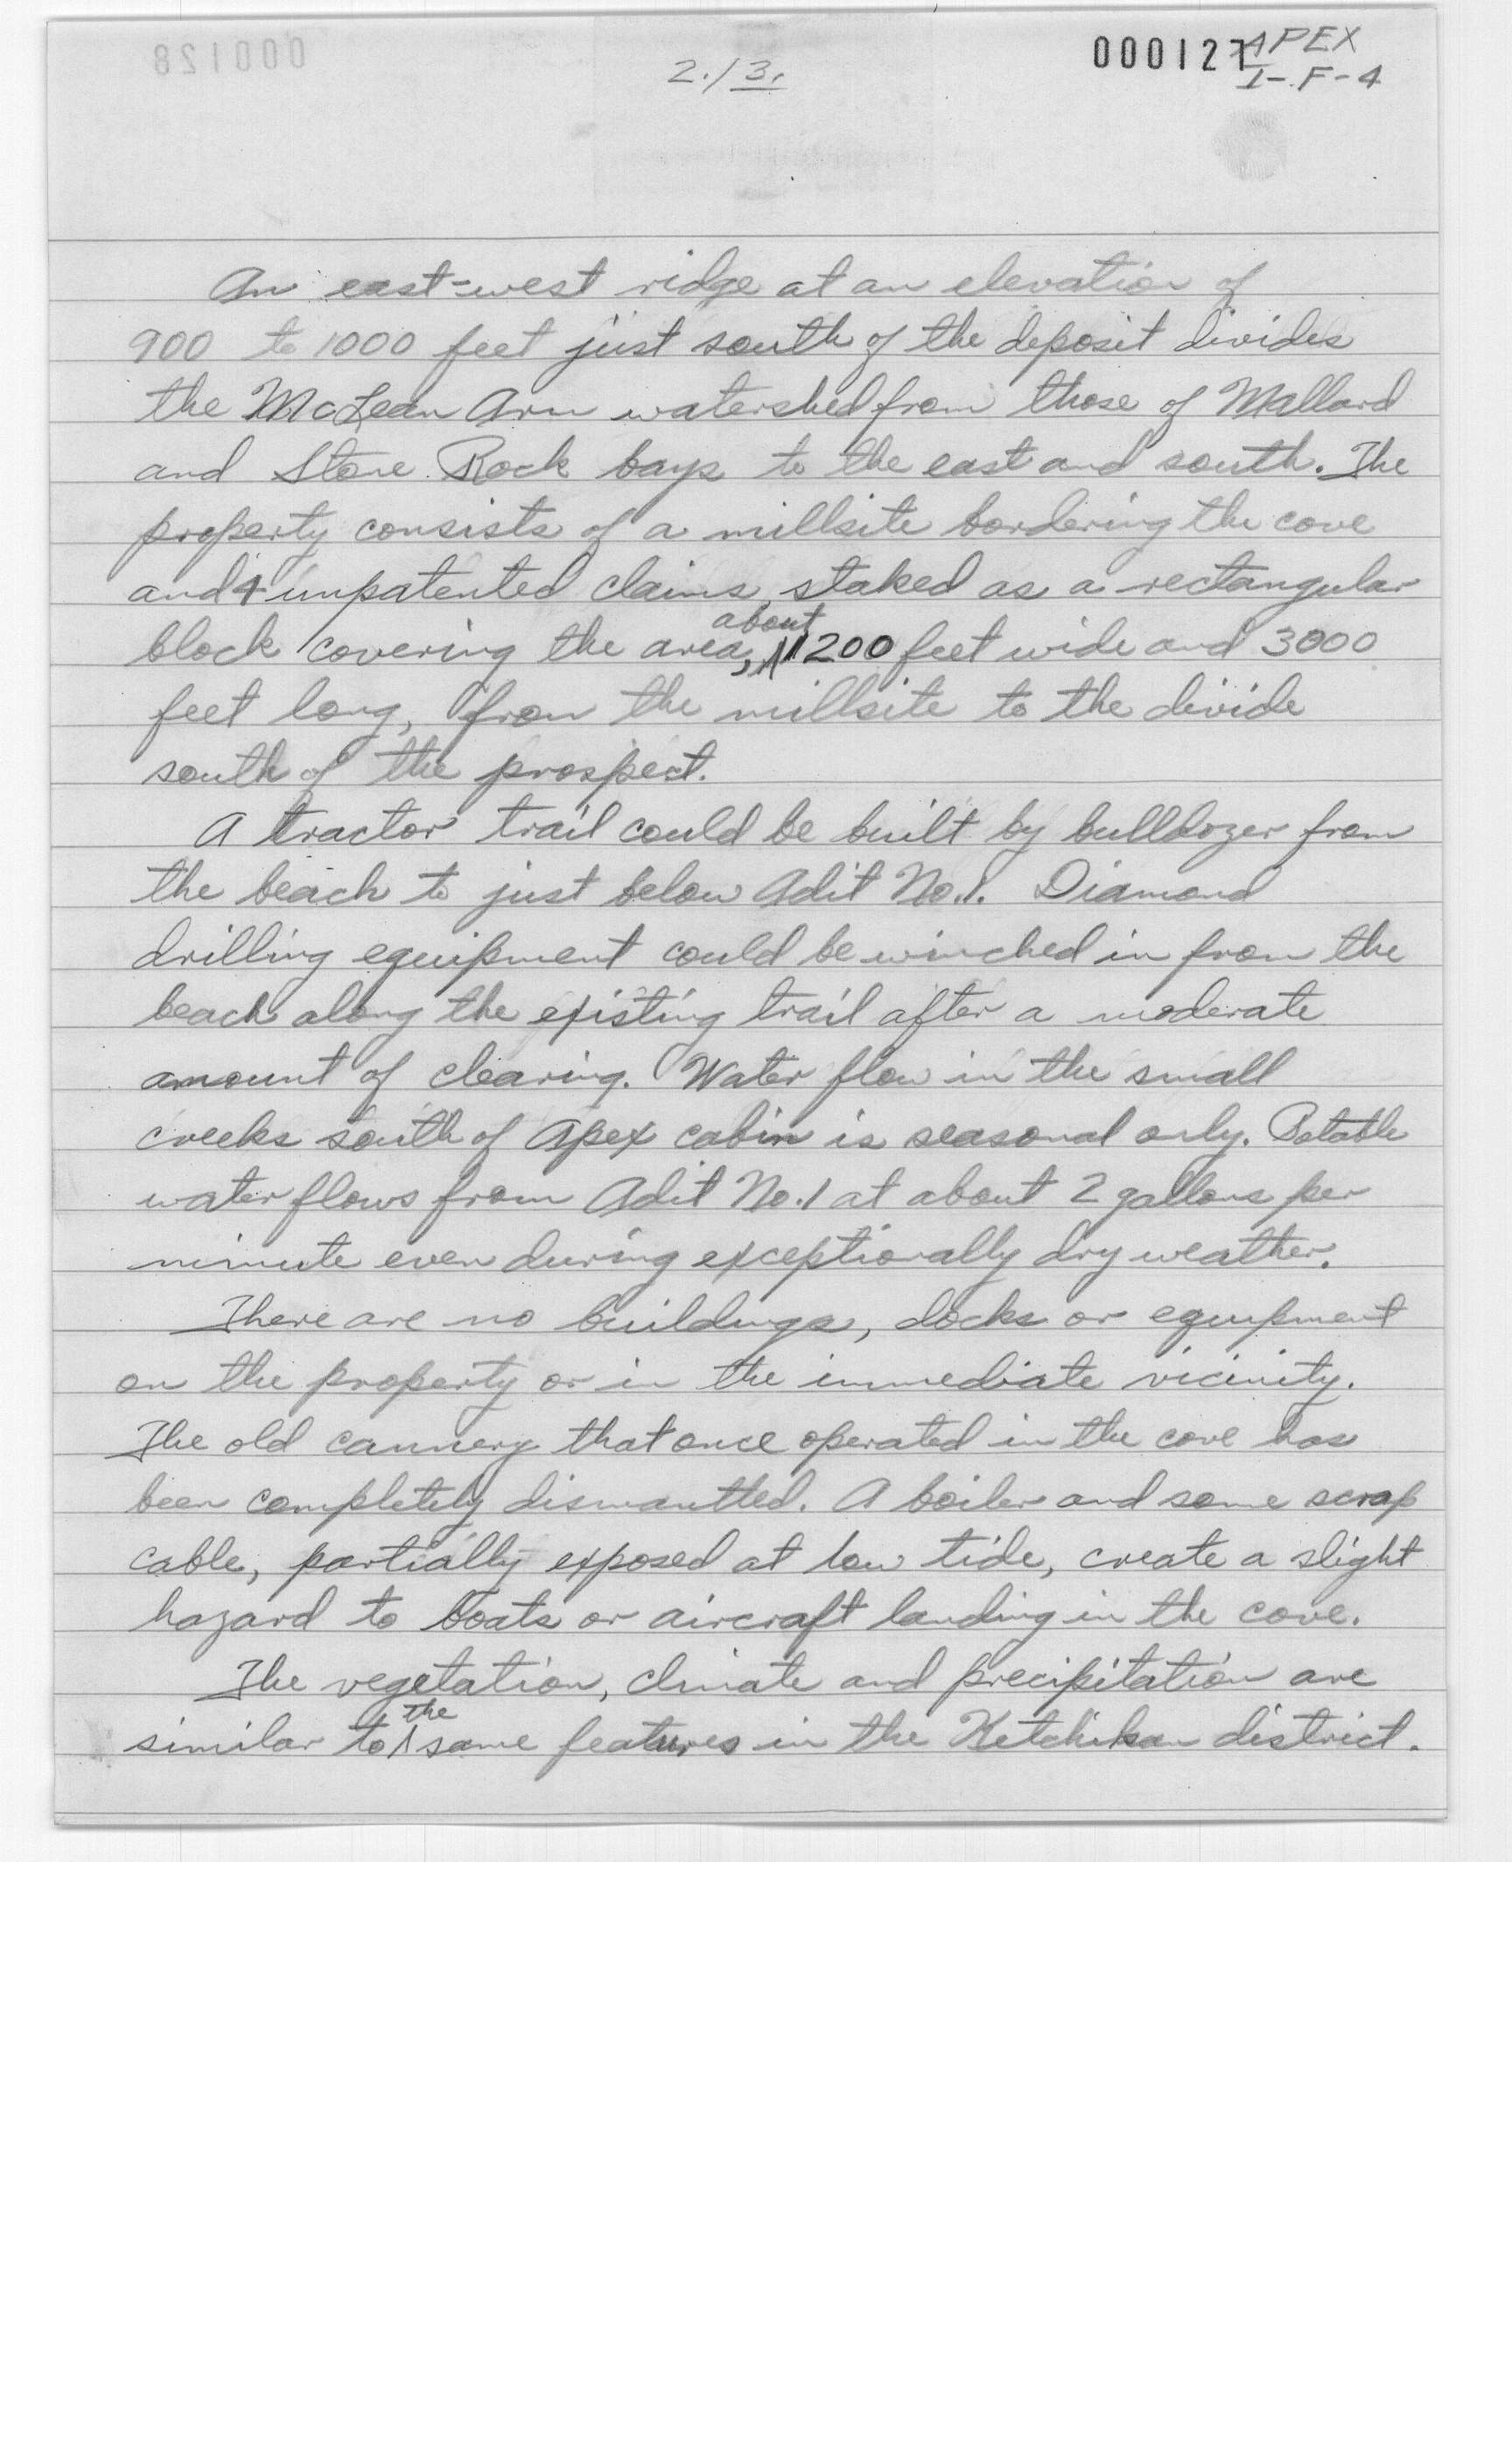 2./3.
000127 APEX
I-F-4
An east-west ridge at an elevation of
900 to 1000 feet just south of the deposit divides
the McLean Arm watershed from those of Mallard
and Stone Rock bays to the east and south. The
property consists of a millsite bordering the cove
and 4 unpatented claims, staked as a rectangular
block covering the area, about 1200 feet wide and 3000
feet long, from the millsite to the divide
south of the prospect.
A tractor trail could be built by bulldozer from
the beach to just below Adit No. 1. Diamond
drilling equipment could be winched in from the
beach along the existing trail after a moderate
amount of clearing. Water flow in the small
creeks south of Apex cabin is seasonal only. Potable
water flows from Adit No. 1 at about 2 gallons per
minute even during exceptionally dry weather.
There are no buildings, docks or equipment
on the property or in the immediate vicinity.
The old cannery that once operated in the cove has
been completely dismantled. A boiler and some scrap
cable, partially exposed at low tide, create a slight
hazard to boats or aircraft landing in the cove.
The vegetation, climate and precipitation are
similar to the same features in the Ketchikan district.